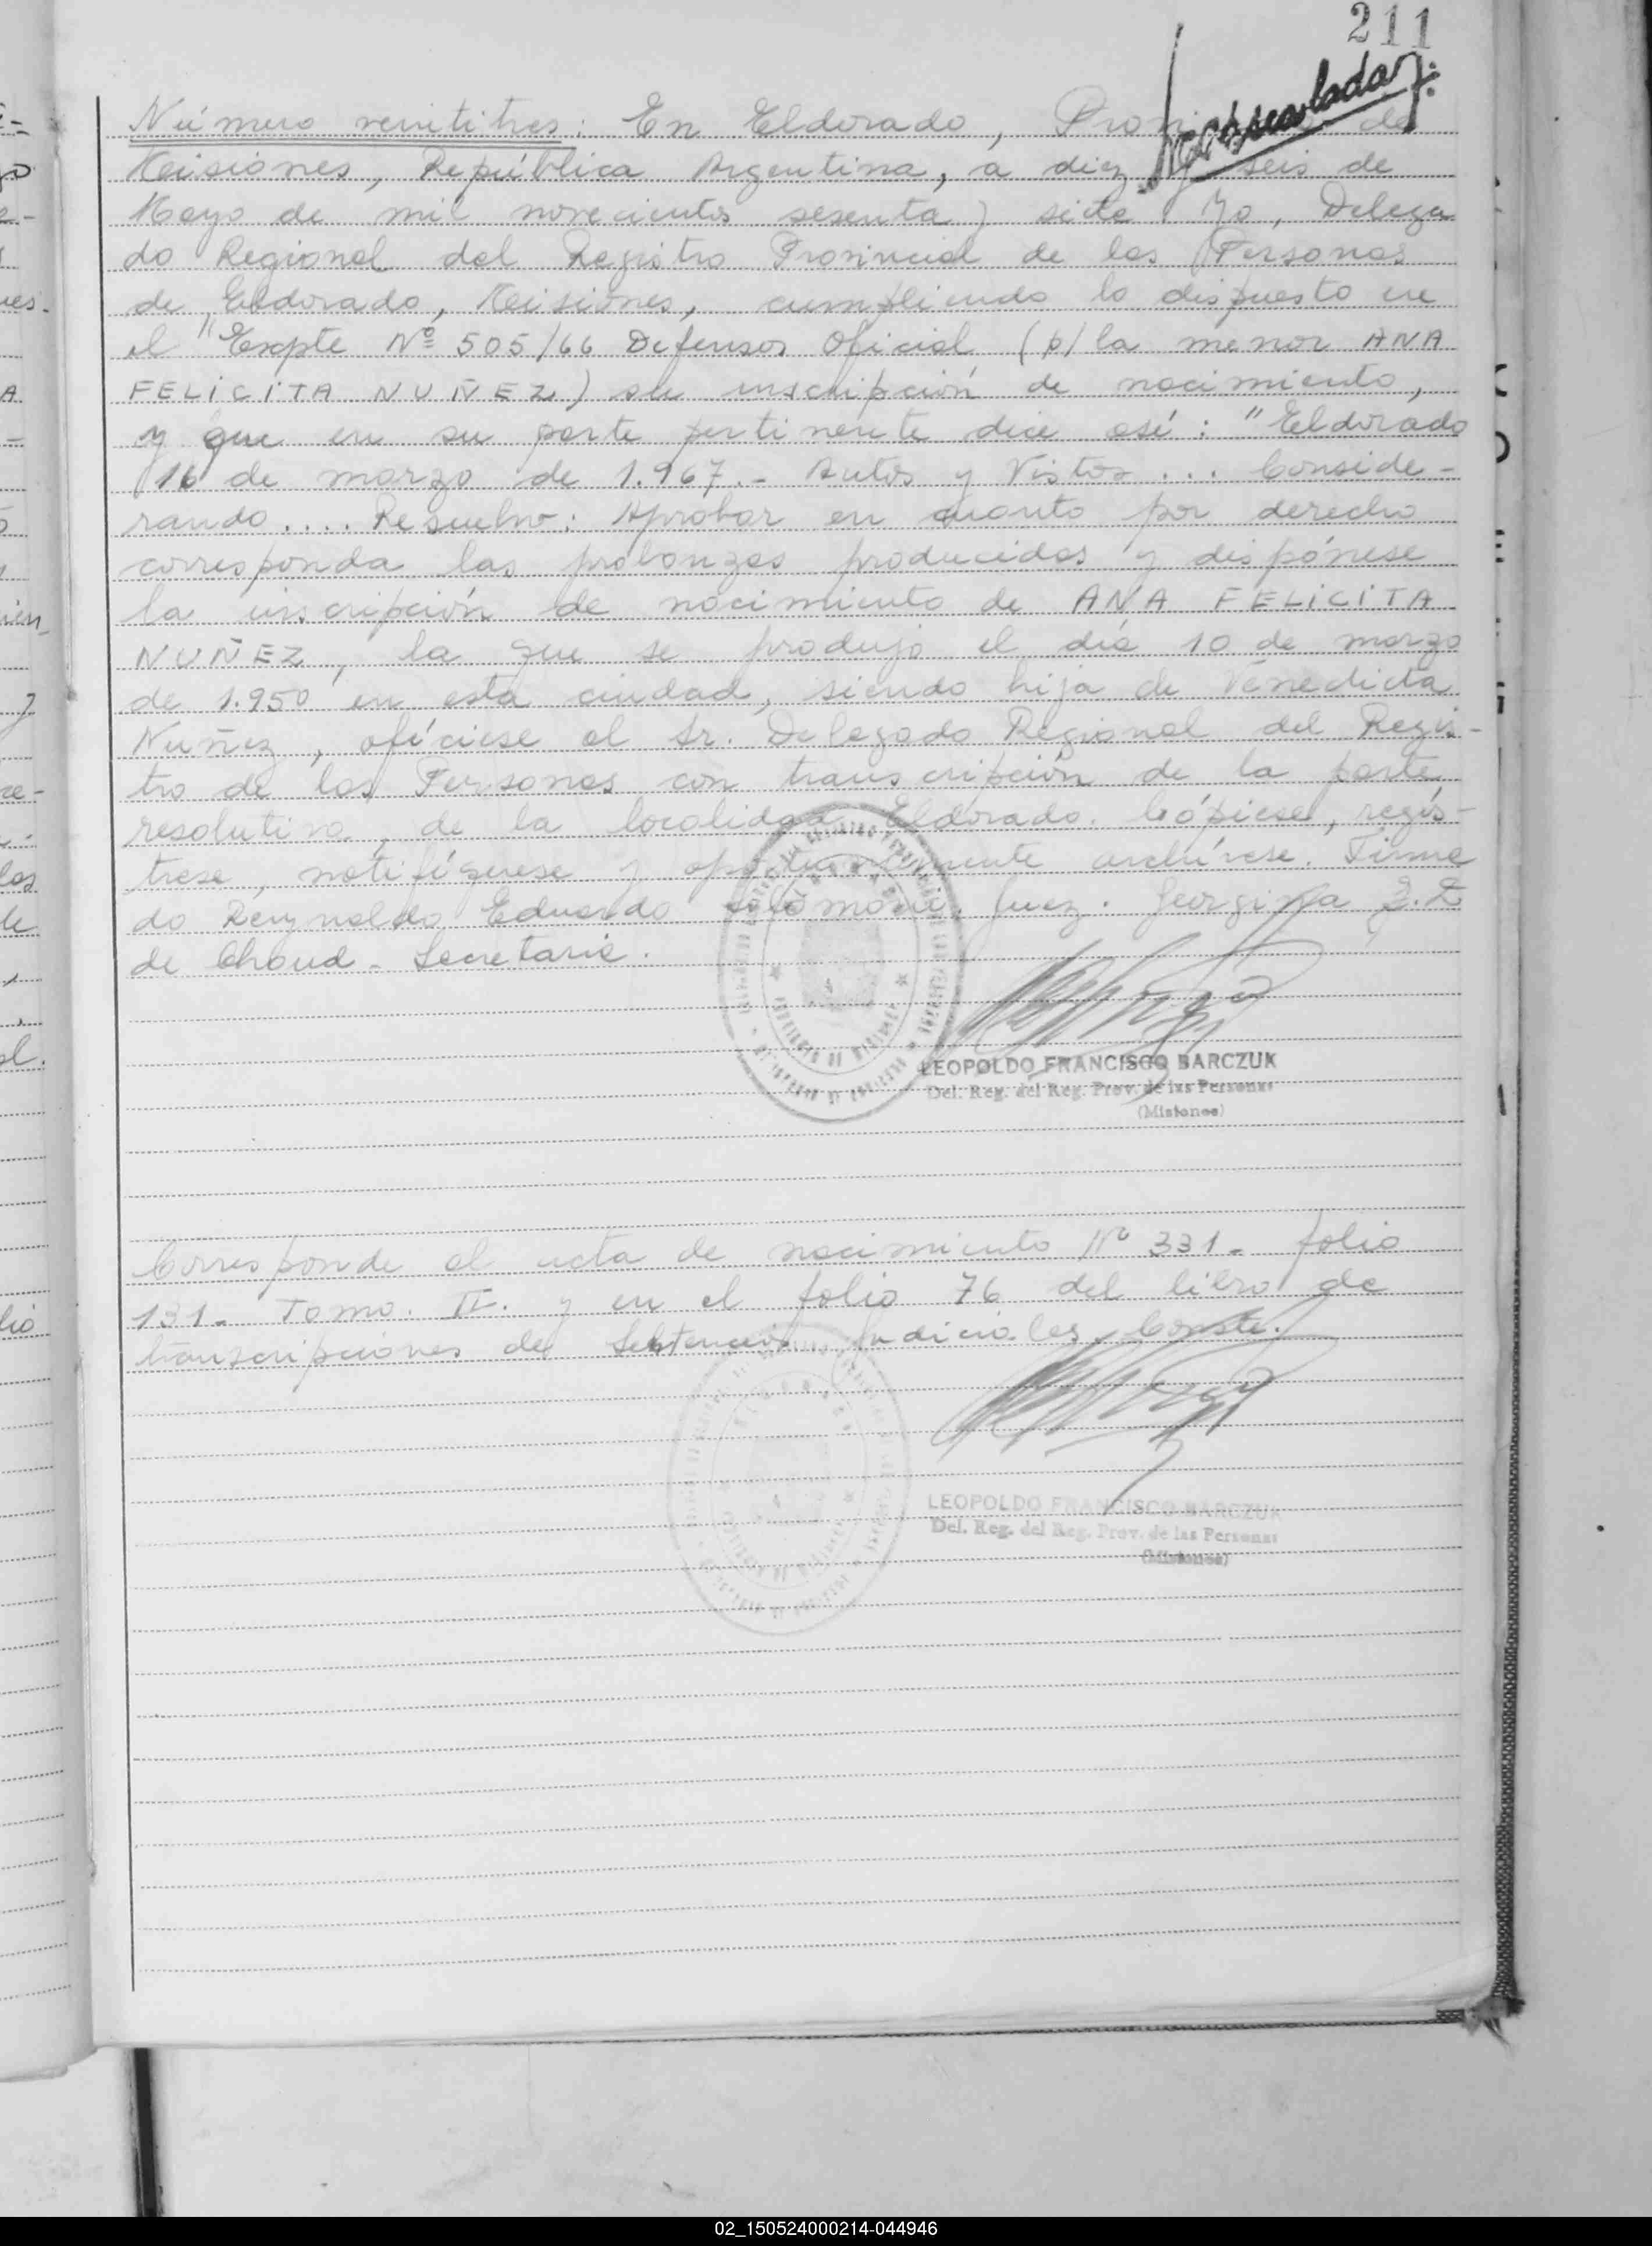 211
Número veintitres: En Eldorado, de
Misiones, República Argentina, a diez y seis de
Mayo de mil novecientos sesenta y siete. Yo, Delega
do Regional del Registro Provincial de las Personas
de Eldorado, Misiones, cumpliendo lo dispuesto en
el "Expte Nº 505/66 Defensor Oficial (p/ la menor ANA
FELICITA NUÑEZ) su inscripción de nacimiento,
y que en su parte pertinente dice así: "Eldorado
16 de marzo de 1.967.- Autos y Vistos ... Conside-
rando.... Resuelvo: Aprobar en cuanto por derecho
corresponda las probanzas producidas y dispónese
la inscripción de nacimiento de ANA FELICITA
NUÑEZ, la que se produjo el día 10 de marzo
de 1.950 en esta ciudad, siendo hija de Venedicta
Nuñez, ofíciese al Sr. Delegado Regional del Regis-
tro de las Personas con transcripción de la parte
resolutiva, de la localidad Eldorado. Cópiese, regis-
trese, notifíquese y oportunamente archívese. Firma
do Reynaldo Eduardo Juez. Georgina
de Chaud - Secretaria.
LEOPOLDO FRANCISCO BARCZUK
Del. Reg. del Reg. Prov. de las Personas
(Misiones)
Corresponde al acta de nacimiento Nº 331 - folio
131 - Tomo. II. y en el folio 76 del libro de
transcripciones de Sentencias Judiciales. Conste.
LEOPOLDO FRANCISCO BARCZUK
Del. Reg. del Reg. Prov. de las Personas
(Misiones)
02_150524000214-044946